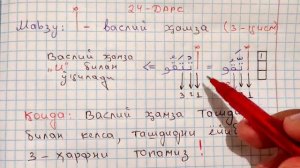 24-ДАРС
Мавзу: ا - васлий ҳамза (3-қисм)
Васлий ҳамза
"И" билан
ўқилади
<= =
3 2 1
Қоида: Васлий ҳамза ташд
билан келса, ташдидни ёйи
3-ҳарфни топамиз!